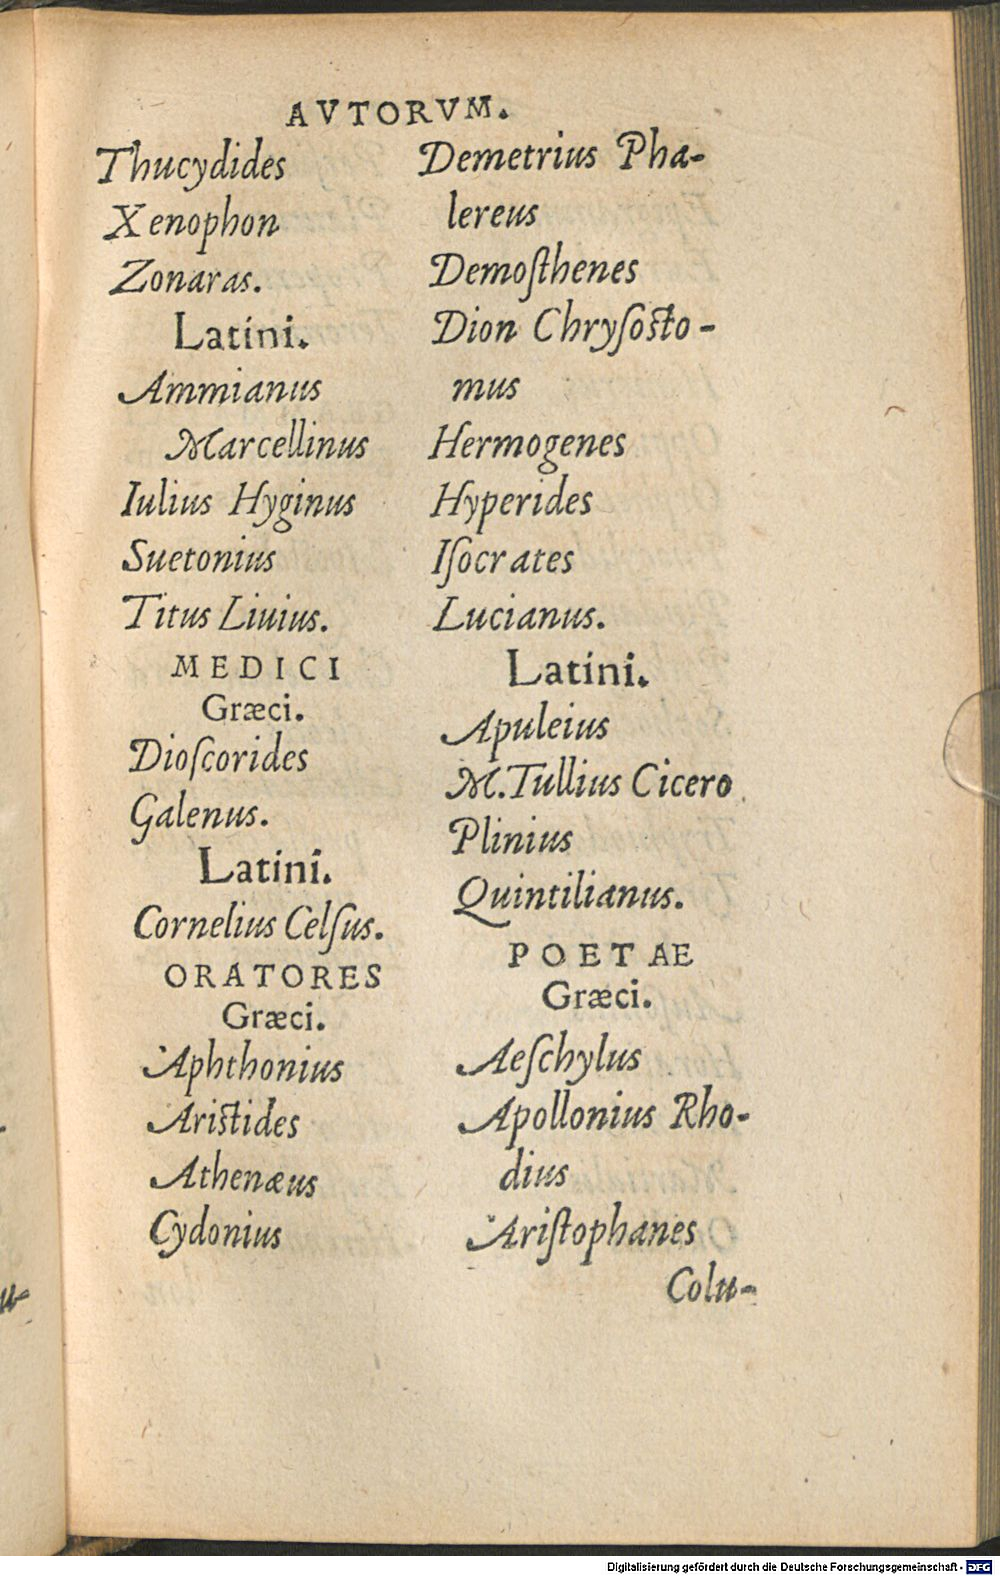 AVTORVM.
Thucydides
Xenophon
Zonaras.
Latini.
Ammianus
Marcellinus
Iulius Hyginus
Suetonius
Titus Liuius.
MEDICI
Græci.
Dioſcorides
Galenus.
Latini.
Cornelius Celſus.
ORATORES
Græci.
Aphthonius
Ariſtides
Athenæus
Cydonius
Demetrius Pha-
lereus
Demoſthenes
Dion Chryſoſto-
mus
Hermogenes
Hyperides
Iſocrates
Lucianus.
Latini.
Apuleius
M. Tullius Cicero
Plinius
Quintilianus.
POETAE
Græci.
Aeſchylus
Apollonius Rho-
dius
Ariſtophanes
Colu-
Digitalisierung gefördert durch die Deutsche Forschungsgemeinschaft - DFG